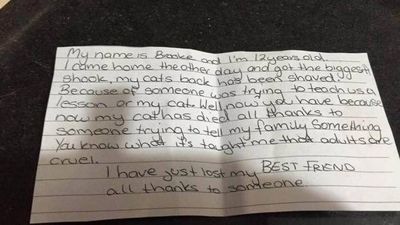 My name is Brooke and I'm 12 years old
I came home the other day and got the biggest
shock, my cats back has been shaved
Because of someone was trying to teach us a
lesson or my cat. Well now you have because
now my cat has died all thanks to
someone trying to tell my family something
You know what it's taught me that adults are
cruel.
I have just lost my BEST FRIEND
all thanks to someone